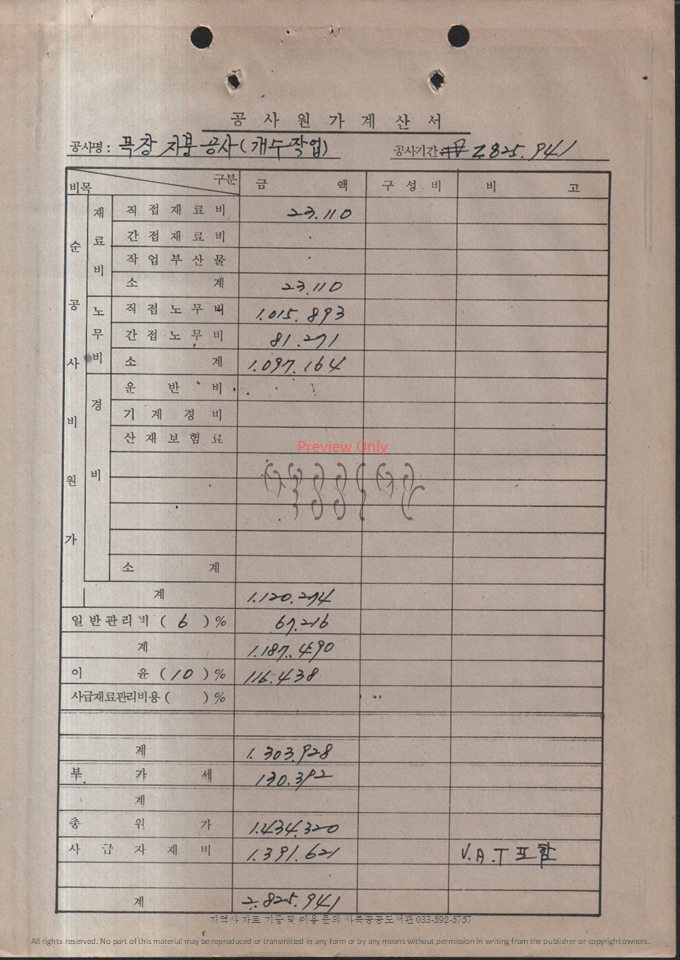 공사원가계산서
공사명: 목창 지붕공사(개수작업) 공사기간 2.825.941
구분
비목 금액 구성비 비고
순공사비원가
재료비 직접재료비 23.110
간접재료비
작업부산물
소계 23.110
노무비 직접노무비 1.015.893
간접노무비 81.271
소계 1.097.164
경비 운반비
기계경비
산재보험료
Preview Only
소계
계 1.120.274
일반관리비 ( 6 ) % 67.216
계 1.187.490
이윤 ( 10 ) % 116.438
사급재료관리비용 ( ) %
계 1.303.928
부가세 130.392
계
총원가 1.434.320
사급자재비 1.391.621 V.A.T 포함
계 2.825.941
지역사 자료 기증 및 이용 문의 사북공공도서관 033-592-5757
All rights reserved. No part of this material may be reproduced or transmitted in any form or by any means without permission in writing from the publisher or copyright owners.